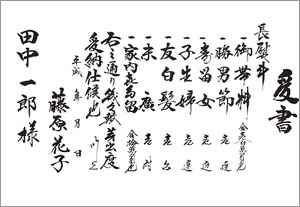 愛書
長熨斗
一御帯料 金壱百萬円也
一勝男節 壱連
一寿留女 壱連
一子生婦 壱連
一友白髪 壱台
一末広 壱対
一家内喜多留 金拾萬円也
右之通り幾久敷芽出度
愛納仕候也
平成 年 月 日
藤原花子
田中一郎様